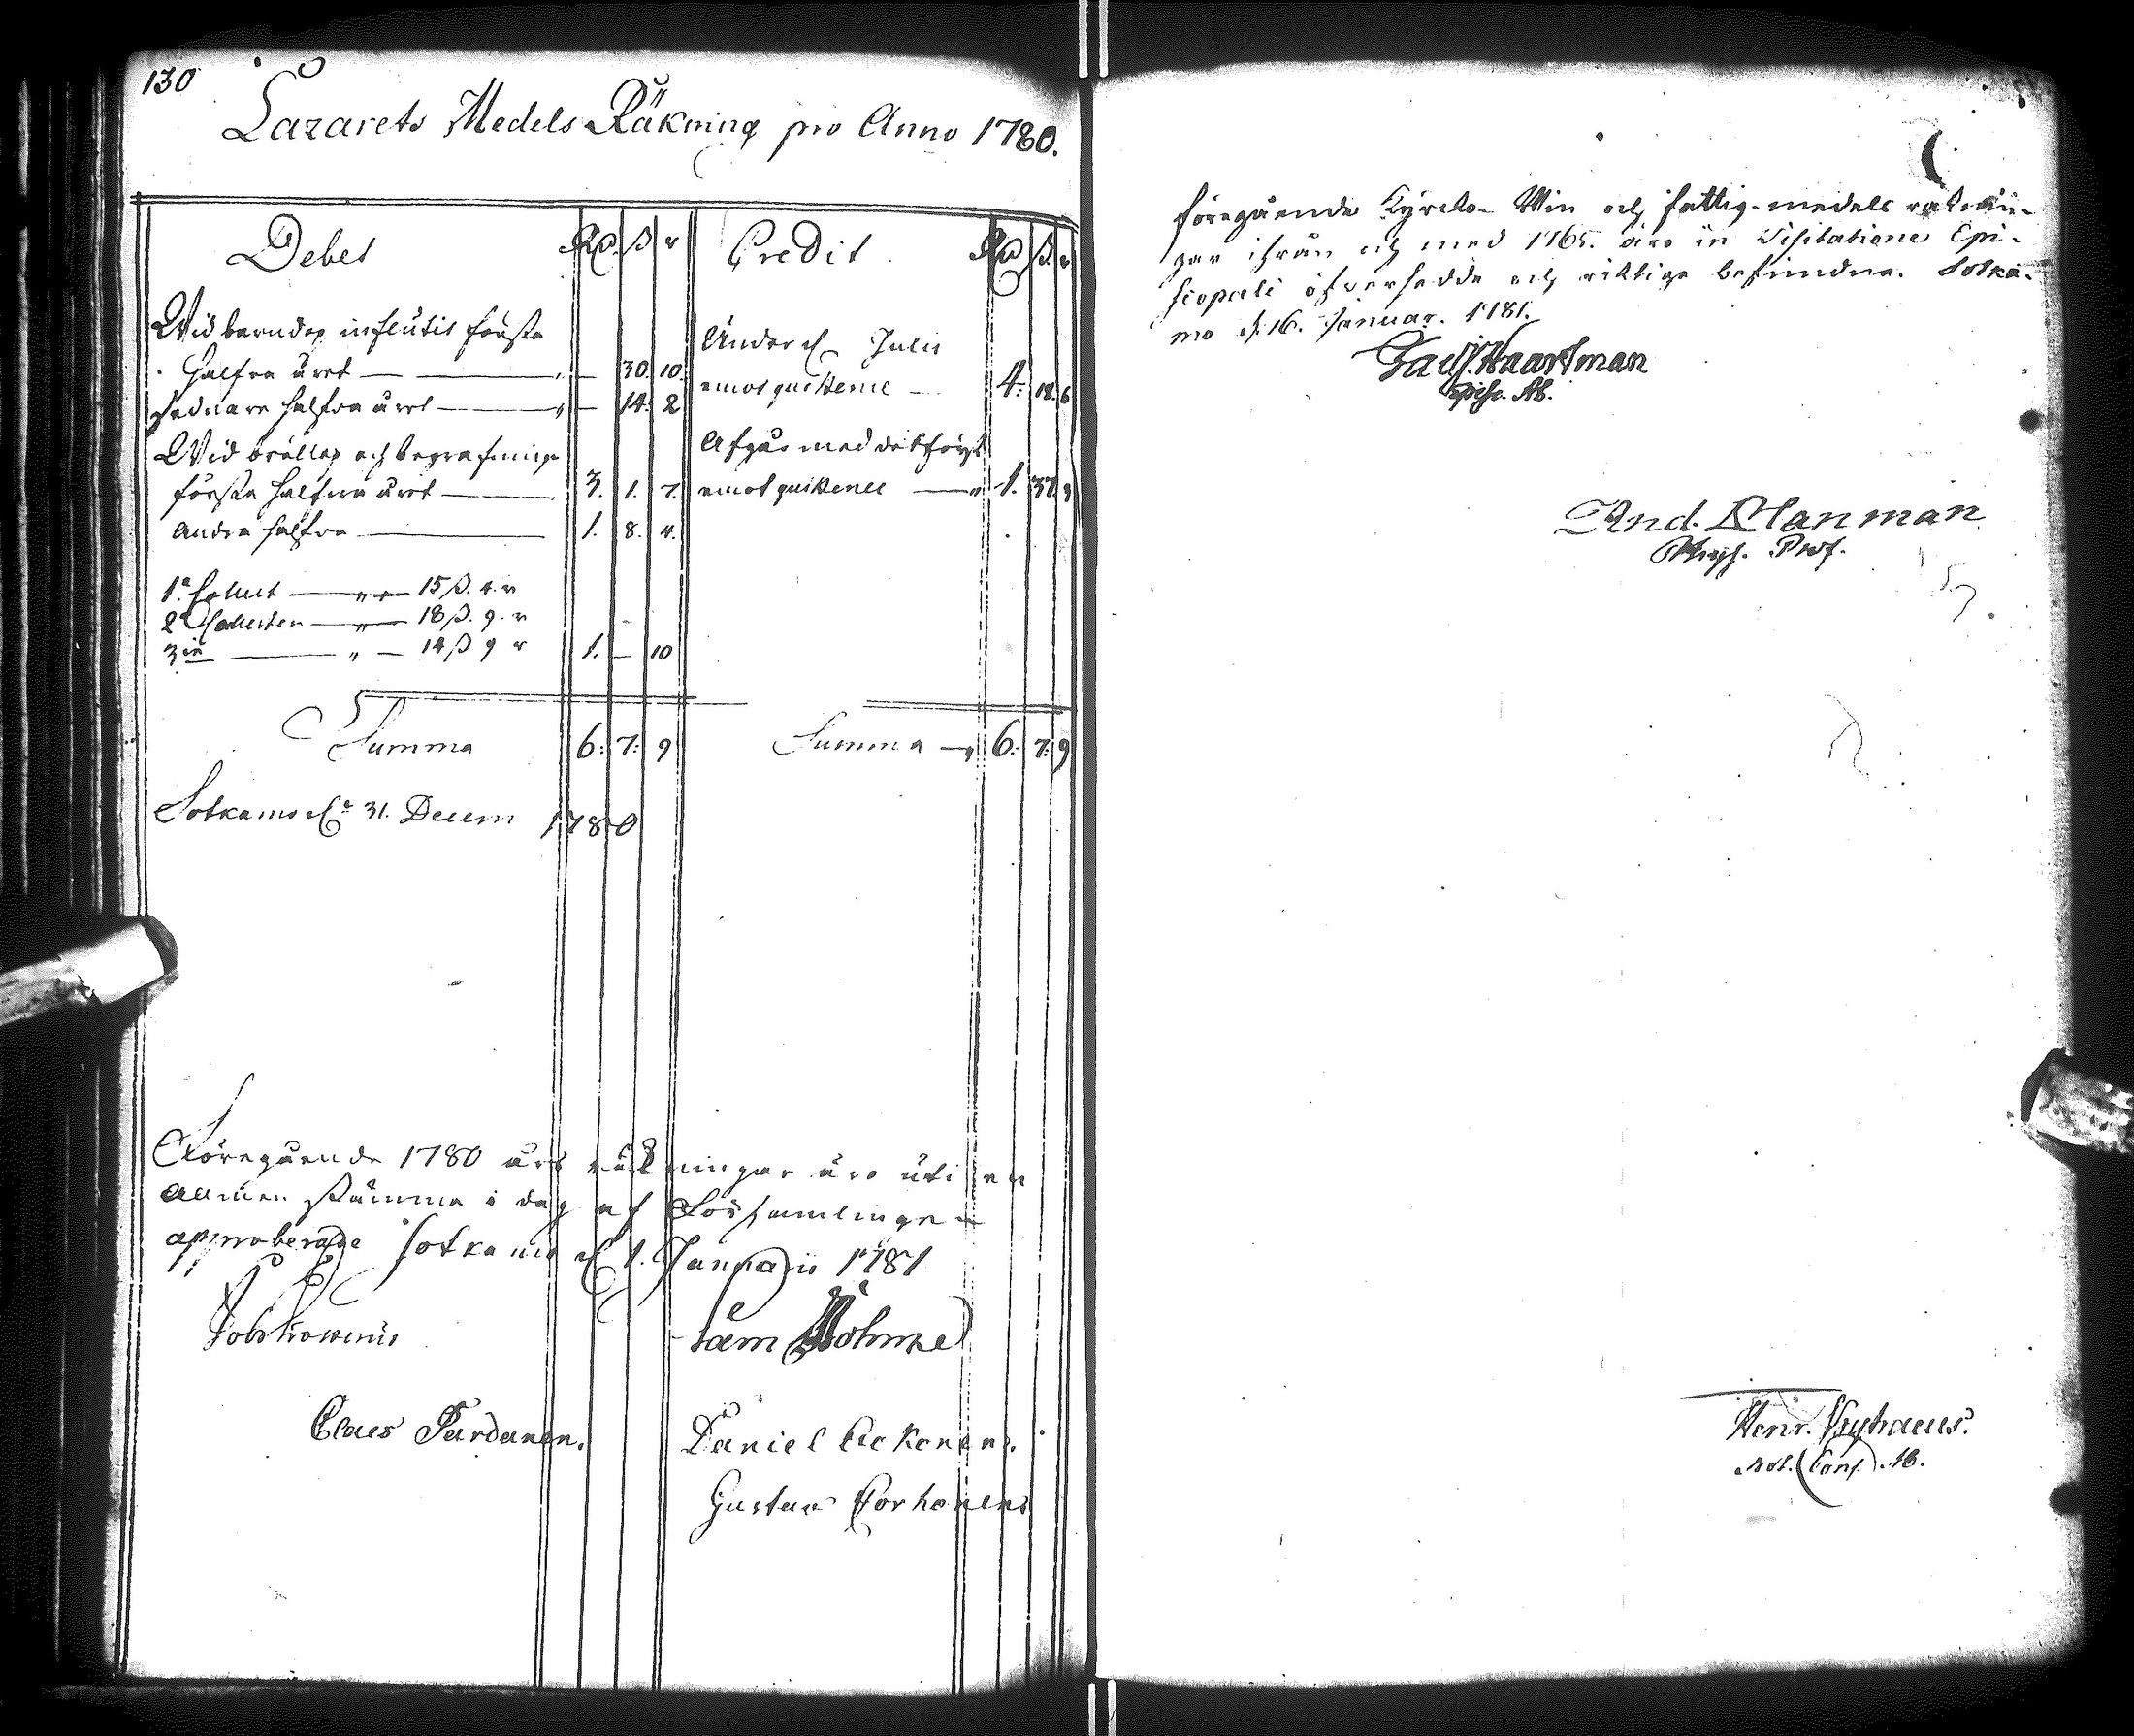 130
Lazarets Medels Räkning pro Anno 1780.
Debet Rd. ß r
Wid barndop influtit första
halfva året — " — 30. 10.
sednare halfva året — " — 14. 2
Wid bröllop och begrafning
första halfva året — 3. 1. 7.
andra halfva — 1. 8. 4.
1a Collect — " — 15 ß. 4. r
2a Collecten — " — 18 ß. 9. r
3ie — " — 14 ß 9 r 1. — 10
Summa 6: 7: 9
Sotkamo d. 31. Decem 1780
Credit. Rd ß. r
Under d. Julii
emot quittence — 4: 18. 6
Afgår med det försk
emot quittence — " 1. 37. 3
Summa — " 6: 7: 9
Föregående 1780 års räkningar äro uti en
allmen stämma i dag af Församlingen
approberade Sotkamo d. 1. Januarii 1781
Claes Tardanen.
Daniel Cackonen.
Gustav Corhonen
föregående Kyrcko- Win och fattig-medels räknin-
gar ifrån och med 1765. äro in Visitatione Epi-
scopali öfversedde och riktige befundne. Sotka-
mo d. 16. Januar. 1781.
Jac. Haartman
Episc. Ab.
And. Planman
Phys. Prof.
Henr.
Not. Cons. Ab.